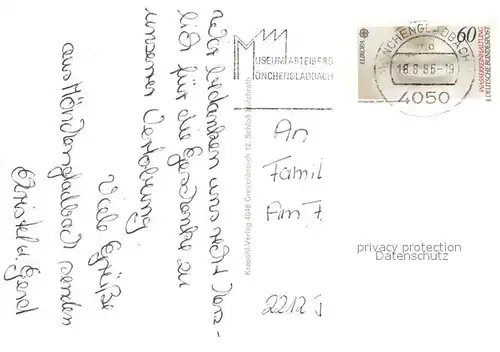 Wir bedanken uns recht herz-
lich für die Geschenke zu
unserer Verlobung.
Viele Grüße
aus Mönchengladbach senden
Christel u. Gerd
MUSEUM ABTEIBERG
MÖNCHENGLADBACH
MÖNCHENGLADBACH
18.8.86-19
4050
EUROPA
60
WASSERREINHALTUNG
DEUTSCHE BUNDESPOST
Krapohl-Verlag 4048 Grevenbroich 12, Schloß Hülchrath
An
Famil
Am
2212
privacy protection
Datenschutz